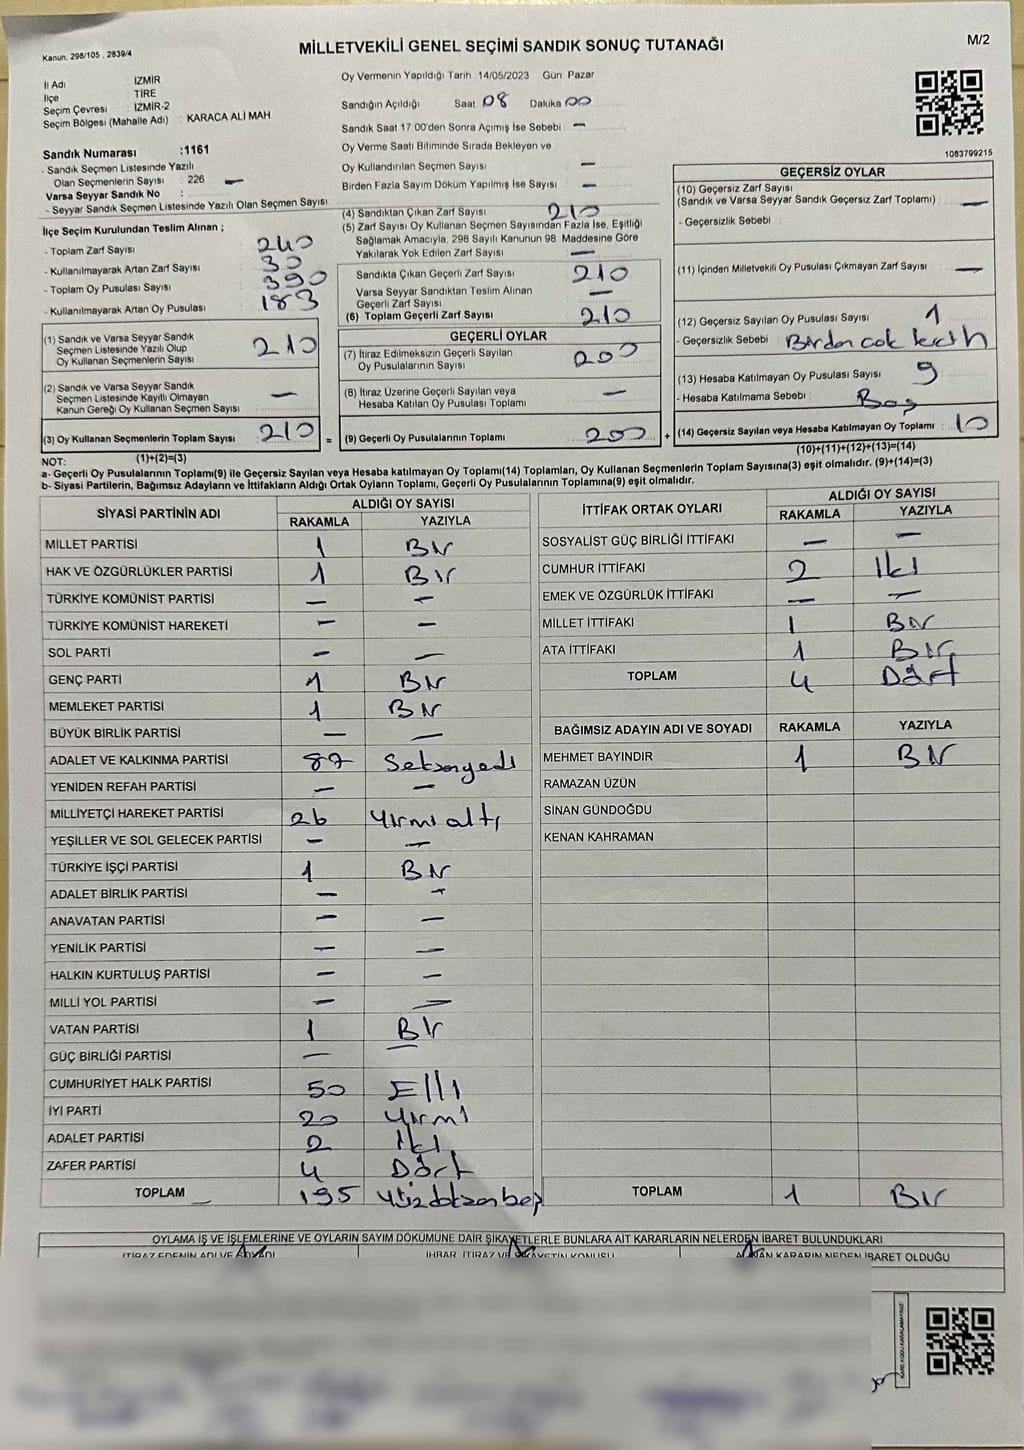 Kanun. 298/105 , 2839/4
MİLLETVEKİLİ GENEL SEÇİMİ SANDIK SONUÇ TUTANAĞI
M/2
İl Adı : İZMİR
İlçe : TİRE
Seçim Çevresi : İZMİR-2
Seçim Bölgesi (Mahalle Adı) : KARACA ALİ MAH
Oy Vermenin Yapıldığı Tarih :14/05/2023 Gün: Pazar
Sandığın Açıldığı Saat 08 Dakika 00
Sandık Saat 17:00'den Sonra Açımış İse Sebebi : —
Oy Verme Saati Bitiminde Sırada Bekleyen ve
Oy Kullandırılan Seçmen Sayısı : —
Birden Fazla Sayım Döküm Yapılmış İse Sayısı : —
1083799215
Sandık Numarası :1161
- Sandık Seçmen Listesinde Yazılı
Olan Seçmenlerin Sayısı : 226 —
Varsa Seyyar Sandık No :
- Seyyar Sandık Seçmen Listesinde Yazılı Olan Seçmen Sayısı
İlçe Seçim Kurulundan Teslim Alınan ;
- Toplam Zarf Sayısı : 240
- Kullanılmayarak Artan Zarf Sayısı : 30
- Toplam Oy Pusulası Sayısı : 390
- Kullanılmayarak Artan Oy Pusulası : 183
(1) Sandık ve Varsa Seyyar Sandık
Seçmen Listesinde Yazılı Olup
Oy Kullanan Seçmenlerin Sayısı : 210
(2) Sandık ve Varsa Seyyar Sandık
Seçmen Listesinde Kayıtlı Olmayan
Kanun Gereği Oy Kullanan Seçmen Sayısı : —
(3) Oy Kullanan Seçmenlerin Toplam Sayısı : 210 =
(1)+(2)=(3)
(4) Sandıktan Çıkan Zarf Sayısı : 210
(5) Zarf Sayısı Oy Kullanan Seçmen Sayısından Fazla İse, Eşitliği
Sağlamak Amacıyla, 298 Sayılı Kanunun 98. Maddesine Göre
Yakılarak Yok Edilen Zarf Sayısı : —
Sandıkta Çıkan Geçerli Zarf Sayısı : 210
Varsa Seyyar Sandıktan Teslim Alınan
Geçerli Zarf Sayısı : —
(6) Toplam Geçerli Zarf Sayısı : 210
GEÇERLİ OYLAR
(7) İtiraz Edilmeksizin Geçerli Sayılan
Oy Pusulalarının Sayısı : 200
(8) İtiraz Üzerine Geçerli Sayılan veya
Hesaba Katılan Oy Pusulası Toplamı : —
(9) Geçerli Oy Pusulalarının Toplamı : 200 +
GEÇERSİZ OYLAR
(10) Geçersiz Zarf Sayısı
(Sandık ve Varsa Seyyar Sandık Geçersiz Zarf Toplamı) : —
- Geçersizlik Sebebi :
(11) İçinden Milletvekili Oy Pusulası Çıkmayan Zarf Sayısı : —
(12) Geçersiz Sayılan Oy Pusulası Sayısı : 1
- Geçersizlik Sebebi : Birden çok
(13) Hesaba Katılmayan Oy Pusulası Sayısı : 9
- Hesaba Katılmama Sebebi : Boş
(14) Geçersiz Sayılan veya Hesaba Katılmayan Oy Toplamı : 10
(10)+(11)+(12)+(13)=(14)
NOT:
a- Geçerli Oy Pusulalarının Toplamı(9) ile Geçersiz Sayılan veya Hesaba katılmayan Oy Toplamı(14) Toplamları, Oy Kullanan Seçmenlerin Toplam Sayısına(3) eşit olmalıdır. (9)+(14)=(3)
b- Siyasi Partilerin, Bağımsız Adayların ve İttifakların Aldığı Ortak Oyların Toplamı, Geçerli Oy Pusulalarının Toplamına(9) eşit olmalıdır.
SİYASİ PARTİNİN ADI ALDIĞI OY SAYISI
RAKAMLA YAZIYLA
MİLLET PARTİSİ 1 Bir
HAK VE ÖZGÜRLÜKLER PARTİSİ 1 Bir
TÜRKİYE KOMÜNİST PARTİSİ — —
TÜRKİYE KOMÜNİST HAREKETİ — —
SOL PARTİ — —
GENÇ PARTİ 1 Bir
MEMLEKET PARTİSİ 1 Bir
BÜYÜK BİRLİK PARTİSİ — —
ADALET VE KALKINMA PARTİSİ 87 Seksenyedi
YENİDEN REFAH PARTİSİ — —
MİLLİYETÇİ HAREKET PARTİSİ 26 Yirmi altı
YEŞİLLER VE SOL GELECEK PARTİSİ — —
TÜRKİYE İŞÇİ PARTİSİ 1 Bir
ADALET BİRLİK PARTİSİ — —
ANAVATAN PARTİSİ — —
YENİLİK PARTİSİ — —
HALKIN KURTULUŞ PARTİSİ — —
MİLLİ YOL PARTİSİ — —
VATAN PARTİSİ 1 Bir
GÜÇ BİRLİĞİ PARTİSİ — —
CUMHURİYET HALK PARTİSİ 50 Elli
İYİ PARTİ 20 Yirmi
ADALET PARTİSİ 2 İki
ZAFER PARTİSİ 4 Dört
TOPLAM 195 Yüzdoksanbeş
İTTİFAK ORTAK OYLARI ALDIĞI OY SAYISI
RAKAMLA YAZIYLA
SOSYALİST GÜÇ BİRLİĞİ İTTİFAKI — —
CUMHUR İTTİFAKI 2 İki
EMEK VE ÖZGÜRLÜK İTTİFAKI — —
MİLLET İTTİFAKI 1 Bir
ATA İTTİFAKI 1 Bir
TOPLAM 4 Dört
BAĞIMSIZ ADAYIN ADI VE SOYADI RAKAMLA YAZIYLA
MEHMET BAYINDIR 1 Bir
RAMAZAN ÜZÜN
SİNAN GÜNDOĞDU
KENAN KAHRAMAN
TOPLAM 1 Bir
OYLAMA İŞ VE İŞLEMLERİNE VE OYLARIN SAYIM DÖKÜMÜNE DAİR ŞİKAYETLERLE BUNLARA AİT KARARLARIN NELERDEN İBARET BULUNDUKLARI
İTİRAZ EDENİN ADI VE SOYADI İHBAR, İTİRAZ VE ŞİKAYETİN KONUSU ALINAN KARARIN NEDEN İBARET OLDUĞU
KARE KODU KARALAMAYINIZ!